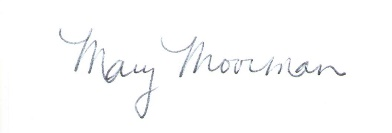 Mary Moorman